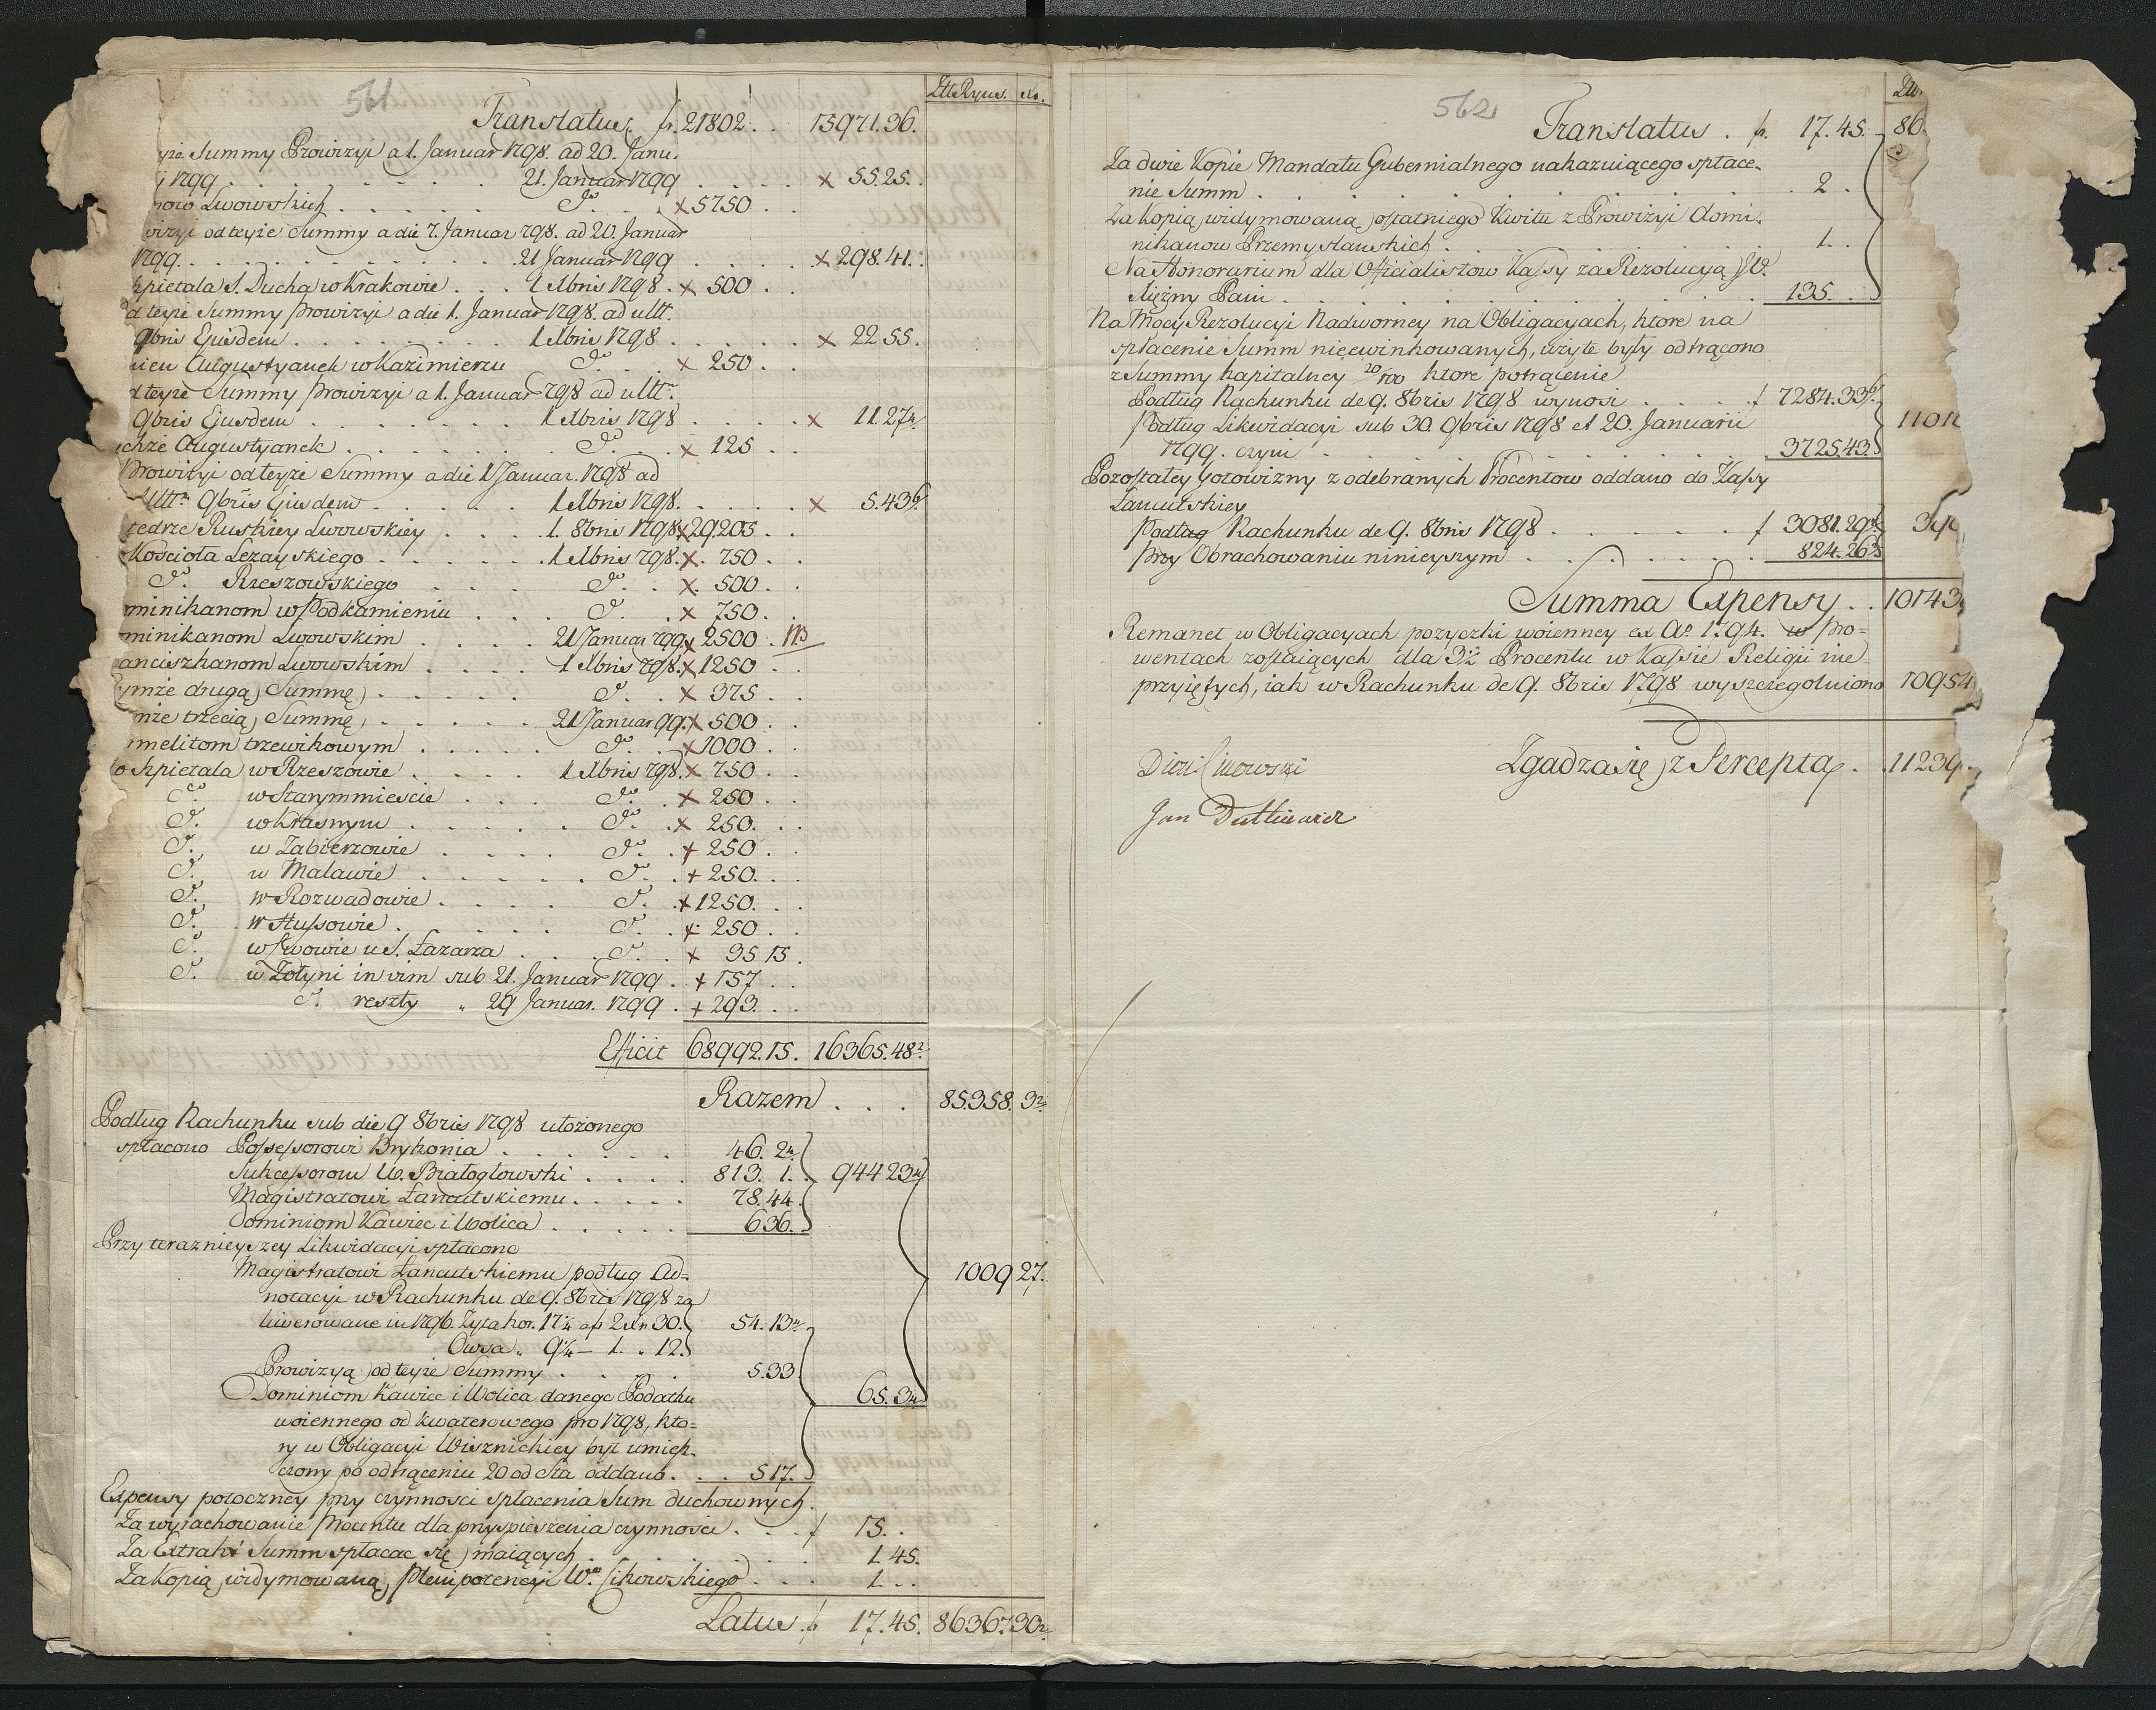 561
Zltt Ryns. Xr.
Translatus. fr. 21802 . . 15971.36.
yże Summy Prowizyi a 1. Januar 1798. ad 20. Janu.
1799 . . . 21. Januar 1799 . . . x 55.25.
now Lwowskich . . . do . x 5750 . .
wizyi od teyże Summy a die 7. Januar 798. ad 20 Januar
1799. . . . 21 Januar 1799 . . . x 298.41.
zpietala S. Ducha w Krakowie . . . 1 Xbris 1798 . x 500 . .
d teyże Summy prowizyi a die 1. Januar 1798. ad ultt.
9bris Ejusdem . . . 1 Xbris 1798 . . . x 22.55.
Augustyanek w Kazimierzu do x 250 . .
d teyże Summy prowizyi a 1. Januar 798 ad ultt.
9bris Ejusdem . . . 1 Xbris 1798 . . . x 11.27
chże Augustyanek . . . do . x 125 . .
Prowizyi od teyże Summy a die 1 Januar. 1798 ad
Ultt. 9bris Ejusdem . . . 1 Xbris 1798. . . . x 5.43
tedrze Ruskiey Lwowskiey . . . 1. 8bris 1798 x 29203 . .
Kościoła Leżayskiego . . . 1 Xbris 798. x 750 . .
do Rzeszowskiego . . . do . x 500 . .
minikanom w Podkamieniu . . . do . x 750 . .
minikanom Lwowskim . . . 21 Januar 799 x 2500 . NB
anciszkanom Lwowskim . . . 1 Xbris 798. x 1250 . .
ymże drugą Summę . . . do . x 375 . .
mże trzecią Summę . . . 21 Januar 99. x 500 . .
rmelitom trzewikowym . . . do . x 1000 . .
o Szpietala w Rzeszowie . . . 1 Xbris 798. x 750 . .
do w Starymmieście . . . do . x 250 . .
do w Krasnym . . . do . x 250. . .
do w Zabierzowie . . . do . x 250 . .
do w Malawie . . . do . x 250. . .
do w Rozwadowie . . . do . x 1250. . .
do w Husowie . . . do . x 250 . .
do w Lwowie u S. Łazarza . . . do . x 35 15 .
do w Żołyni in vim sub 21. Januar 1799 . x 157 . .
do reszty „ 29 Januar. 1799 . x 293. . .
Efficit 68992.15. 16365.48²
Razem . . . 85358.3
Podług Rachunku sub die 9 8bris 1798 ułożonego
spłacono Possessorowi Brykonia . . . 46. 2
Sukcessorom W. Białogłowski . . . 813. 1. . 944 23
Magistratowi Łancutskiemu . . . 78.44.
Dominiom Kawiec i Wolica . . . 636.
Przy teraznieyszey Likwidacyi spłacono
Magistratowi Łancutskiemu podług Ad=
notacyi w Rachunku de 9. 8bris 1798 za
liwerowane in 1796. Zyta kor. 17 2/4 a fr 2 Xr 30. 54. 13
Owsa „ 9 2/4 — 1. „ 12.
Prowizyą od teyże Summy . . . 5.33
1009 27.
Dominiom Kawiec i Wolica danego Podatku 65.3
woiennego od kwaterowego pro 1798, kto=
ry w Obligacyi Wisznickiey był umiesz.
czony po odtrąceniu 20 od Sta oddano . . . 517.
Expensy potoczney przy czynności spłacenia Sum duchownych.
Za wyrachowanie Procentu dla przyspieszenia czynności . . . f 15. .
Za Extrakt Summ spłacac się maiących . . . 1.45.
Za kopią widymowaną Plenipotencyi Wo. Cikowskiego . . . 1. .
Latus. fr 17.45. 86367.30
562
Translatus . fr. 17.45. 86
Za dwie Kopie Mandatu Gubernialnego nakazuiącego spłace.
nie Summ . . . 2 .
Za kopią widymowaną ostatniego Kwitu z Prowizyi Domi.
nikanow Przemysławskich . . . 1. .
Na Honorarium dla Officialistow Kassy za Rezolucyą JW.
Xiężny Pani . . . 135. .
Na Mocy Rezolucyi Nadworney na Obligacyach, które na
spłacenie Summ niecwinkowanych, użyte były odtrącono
z Summy kapitalney 20/100 ktore potrącenie
Podług Rachunku de 9. 8bris 1798 wynosi . . . f 7284.33
Podług Likwidacyi sub 30. 9bris 1798 et 20. Januarii 1101
1799. czyni . . . 3725.43.
Pozostałey Gotowizny z odebranych Procentow oddano do Kassy
Łancutskiey
Podług Rachunku de 9. 8bris 1798 . . . f 3081.29
przy Obrachowaniu ninieyszym . . . 824.26
Summa Expensy . . 10143
Remanet w Obligacyach pozyczki woienney ex Ao 1794. w Pro=
wentach zostaiących dla 3 1/2 Procentu w Kassie Religii nie
przyiętych, iak w Rachunku de 9. 8bris 1798 wyszczegolniono 10954
Zgadza się z Perceptą . . 11239
Jan Dutkiewicz